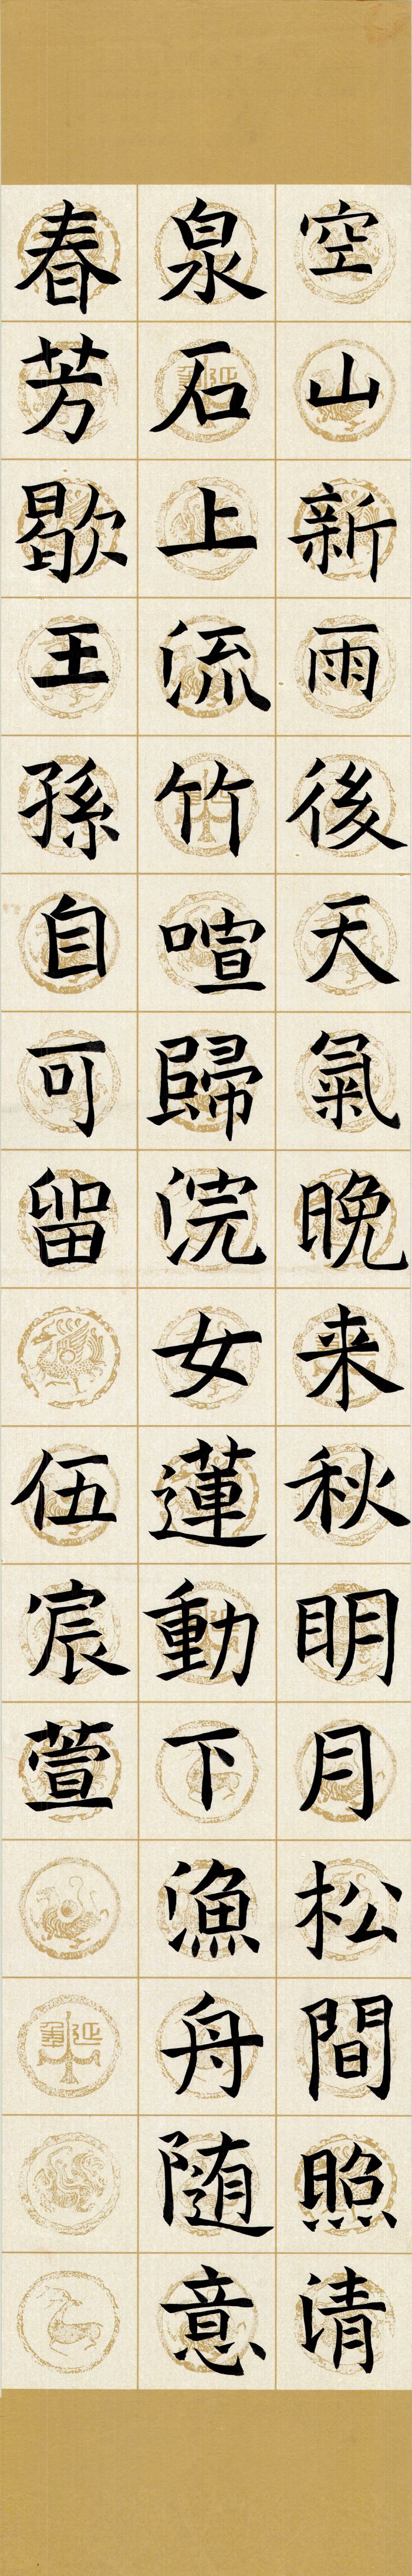 空山新雨後天氣晚来秋明月松間照清
泉石上流竹喧歸浣女蓮動下漁舟随意
春芳歇王孫自可留 伍宸萱